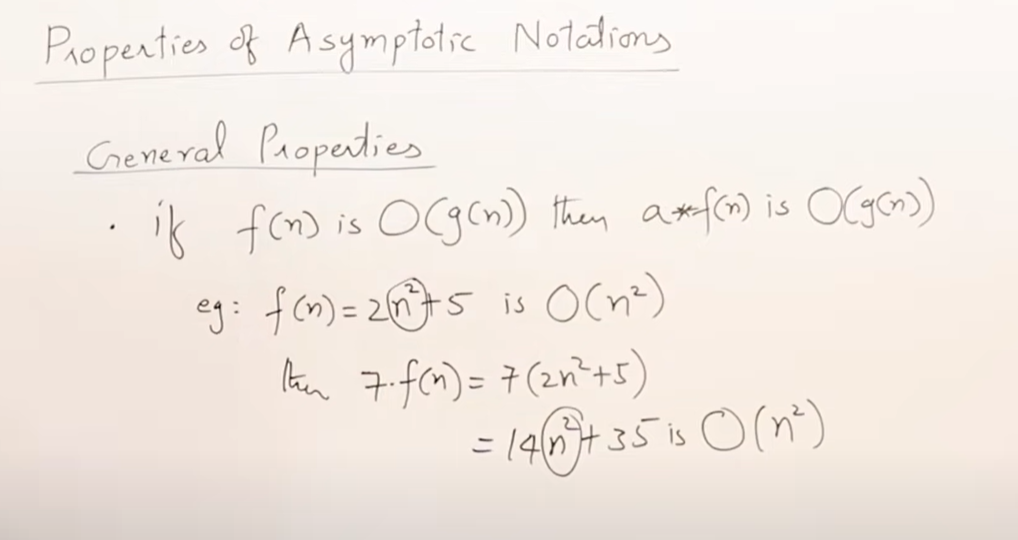 Properties of Asymptotic Notations
General Properties
· if f(n) is O(g(n)) then a*f(n) is O(g(n))
eg: f(n) = 2n²+5 is O(n²)
then 7·f(n) = 7(2n²+5)
= 14n²+35 is O(n²)